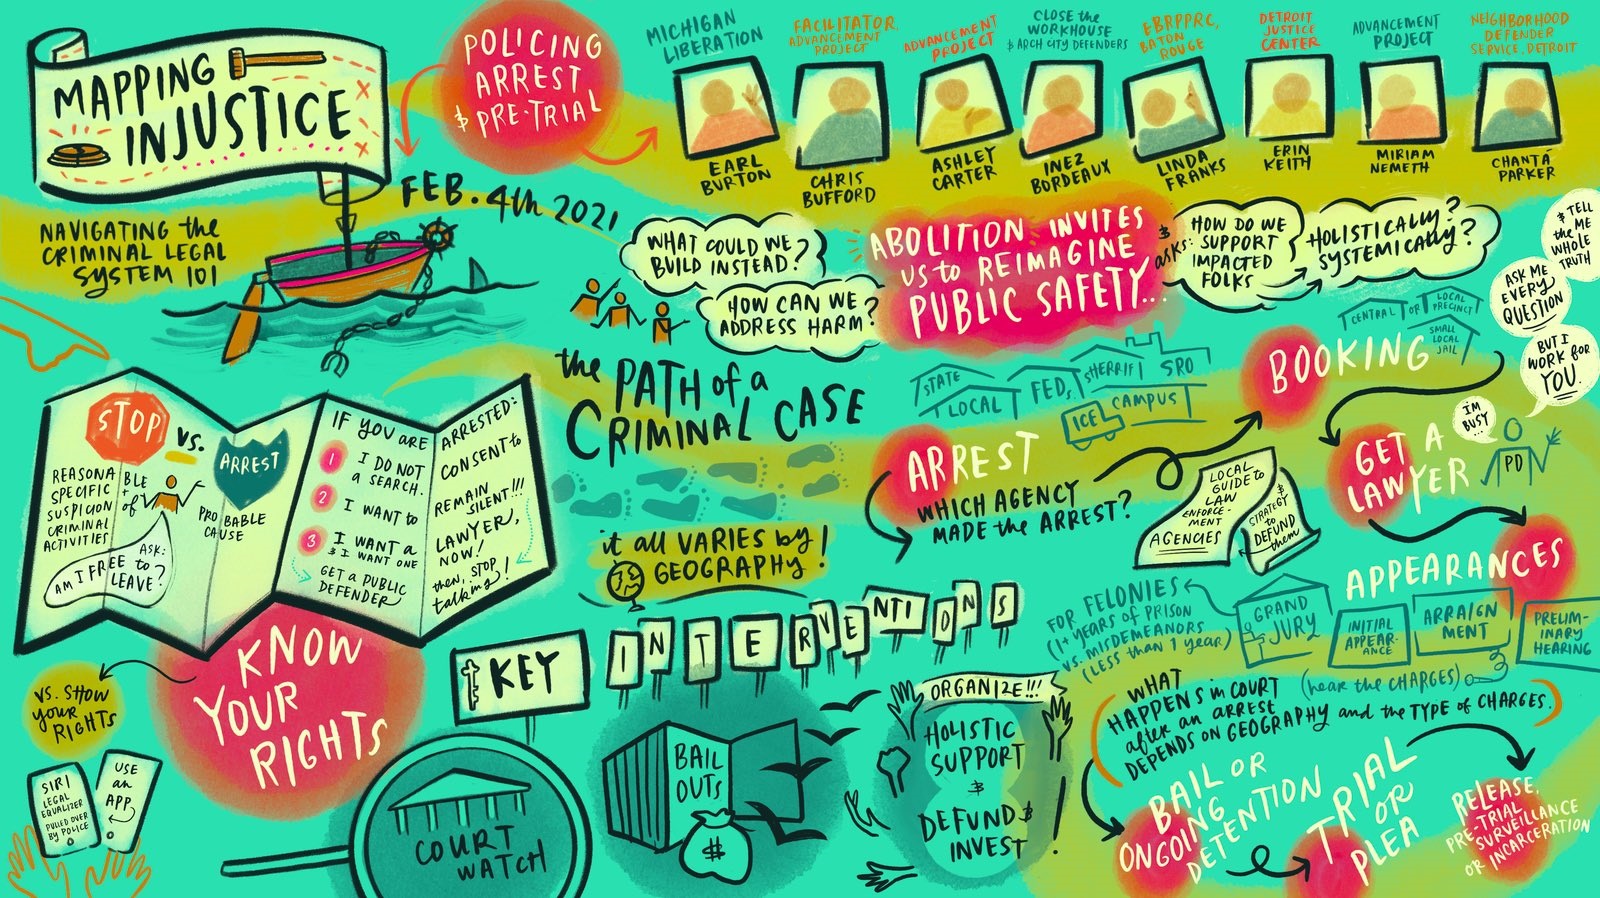 MAPPING
INJUSTICE
NAVIGATING the
CRIMINAL LEGAL
SYSTEM 101
POLICING
ARREST
& PRE-TRIAL
FEB. 4th 2021
MICHIGAN
LIBERATION
EARL
BURTON
FACILITATOR,
ADVANCEMENT
PROJECT
CHRIS
BUFFORD
ADVANCEMENT
PROJECT
ASHLEY
CARTER
CLOSE the
WORKHOUSE
& ARCH CITY DEFENDERS
INEZ
BORDEAUX
EBRPPRC,
BATON
ROUGE
LINDA
FRANKS
DETROIT
JUSTICE
CENTER
ERIN
KEITH
ADVANCEMENT
PROJECT
MIRIAM
NEMETH
NEIGHBORHOOD
DEFENDER
SERVICE, DETROIT
CHANTÁ
PARKER
WHAT COULD WE
BUILD INSTEAD?
HOW CAN WE
ADDRESS HARM?
ABOLITION INVITES
US to REIMAGINE
PUBLIC SAFETY...
& asks:
HOW DO WE
SUPPORT
IMPACTED
FOLKS
HOLISTICALLY?
SYSTEMICALLY?
the PATH of a
CRIMINAL CASE
it all VARIES by
GEOGRAPHY!
STATE
LOCAL
FEDS
SHERRIFF
SRO
ICE
CAMPUS
ARREST
WHICH AGENCY
MADE the ARREST?
LOCAL
GUIDE to
LAW
ENFORCE-
MENT
AGENCIES
& STRATEGY
to
DEFUND
them
BOOKING
CENTRAL
OF
LOCAL
PRECINCT
SMALL
LOCAL
JAIL
GET A
LAWYER
I'M
BUSY...
PD
BUT I
WORK for
YOU.
ASK ME
EVERY
QUESTION
& TELL
ME
the
WHOLE
TRUTH
APPEARANCES
FOR FELONIES
(1+ YEARS of PRISON
VS. MISDEMEANORS
(LESS THAN 1 YEAR.)
GRAND
JURY
INITIAL
APPEAR-
ANCE
ARRAIGN
MENT
PRELIM-
INARY
HEARING
(hear the CHARGES)
WHAT
HAPPENS in COURT
after AN ARREST
DEPENDS ON GEOGRAPHY and the TYPE of CHARGES.
BAIL OR
ONGOING
DETENTION
TRIAL
OR
PLEA
RELEASE,
PRE-TRIAL
SURVEILLANCE
OR INCARCERATION
STOP
VS.
ARREST
REASONABLE
+
SPECIFIC
SUSPICION of
CRIMINAL
ACTIVITIES
ASK:
AM I FREE to
LEAVE?
PROBABLE
CAUSE
IF YOU ARE ARRESTED:
1 I DO NOT CONSENT to
A SEARCH.
2 I WANT to REMAIN
SILENT!!!
3 I WANT A LAWYER,
& I WANT ONE NOW!
GET A PUBLIC
DEFENDER
then, STOP
talking!
KNOW
YOUR
RIGHTS
VS. SHOW
your
RIGHTS
SIRI
LEGAL
EQUALIZER
PULLED OVER
by POLICE
USE
an
APP
KEY
INTERVENTIONS
COURT
WATCH
BAIL
OUTS
$
ORGANIZE!!!
HOLISTIC
SUPPORT
&
DEFUND &
INVEST